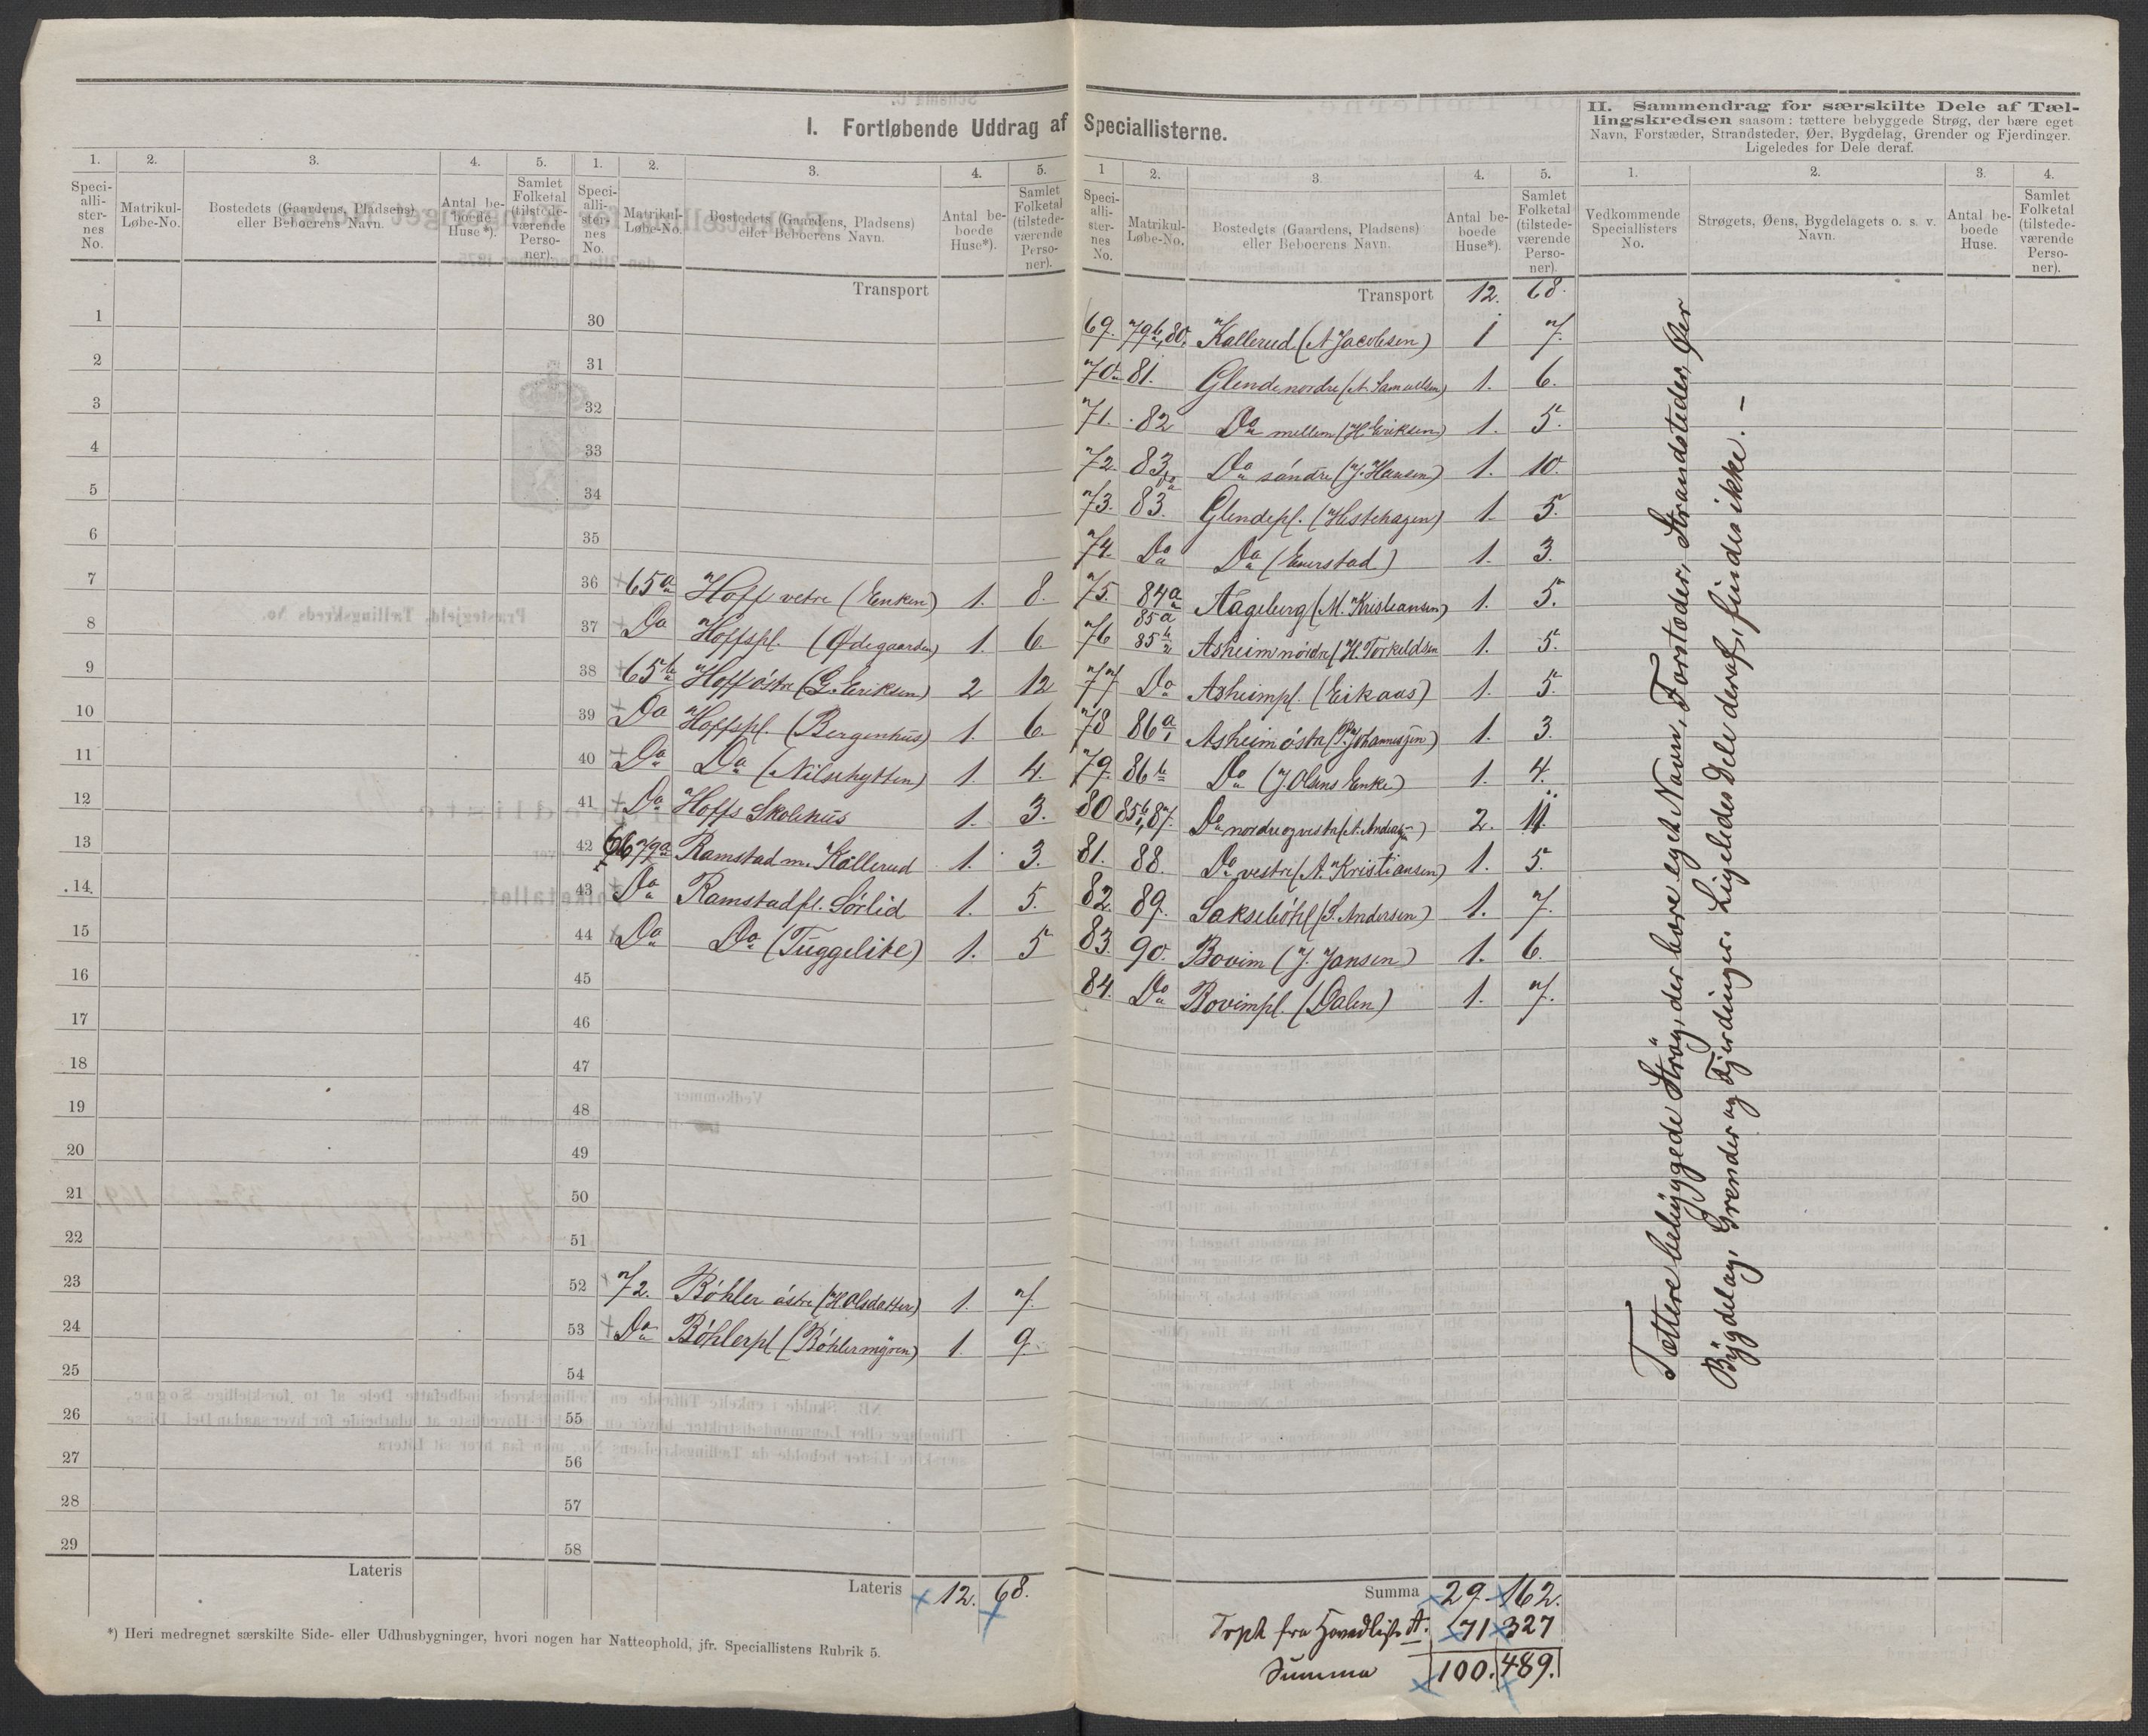 I. Fortløbende Uddrag af Speciallisterne.
II. Sammendrag for særskilte Dele af Tæl-
lingskredsen saasom: tættere bebyggede Strøg, der bære eget
Navn, Forstæder, Strandsteder, Øer, Bygdelag, Grender og Fjerdinger.
Ligeledes for Dele deraf.
1. 2. 3. 4. 5.
Speci-
alli-
ster-
nes
No.
Matrikul-
Løbe-No.
Bostedets (Gaardens, Pladsens)
eller Beboerens Navn.
Antal be-
boede
Huse*).
Samlet
Folketal
(tilstede-
værende
Perso-
ner).
1
2
3
4
5
6
7
8
9
10
11
12
13
14
15
16
17
18
19
20
21
22
23
24
25
26
27
28
29
Lateris
1. 2. 3. 4. 5.
Speci-
alli-
ster-
nes
No.
Matrikul-
Løbe-No.
Bostedets (Gaardens, Pladsens)
eller Beboerens Navn.
Antal be-
boede
Huse*).
Samlet
Folketal
(tilstede-
værende
Perso-
ner).
Transport
30
31
32
33
34
35
36 65a Hoff vetre (Enken) 1. 8.
37 Do Hoffspl. (Ødegaarden) 1. 6.
38 65b Hoff östre (G. Eriksen) 2 12
39 Do Hoffspl. (Bergenhus) 1. 6.
40 Do Do (Nilsehytten) 1. 4.
41 Do Hoffs Skolehus 1. 3.
42 66, 79a Ramstad m. Kallerud 1. 3.
43 Do Ramstadpl. Sørlid 1. 5.
44 Do Do (Tuggelike) 1. 5
45
46
47
48
49
50
51
52 72. Böhler östre (H. Olsdatter) 1. 7.
53 Do Böhlerpl (Böhlermyren) 1. 9.
54
55
56
57
58
Lateris 12. 68.
*) Heri medregnet særskilte Side- eller Udhusbygninger, hvori nogen har Natteophold, jfr. Speciallistens Rubrik 5.
1 2. 3. 4. 5.
Speci-
alli-
ster-
nes
No.
Matrikul-
Løbe-No.
Bostedets (Gaardens, Pladsens)
eller Beboerens Navn.
Antal be-
boede
Huse*).
Samlet
Folketal
(tilstede-
værende
Perso-
ner).
Transport 12. 68.
69. 79b, 80. Kallerud (A Jacobsen) 1 7.
70. 81. Glende nordre (A. Samuelsen) 1. 6.
71. 82 Do mellem (H. Eriksen) 1. 5.
72. 83, Do söndre (J. Hansen) 1. 10.
73. 83. Glendepl. (Hestehagen) 1. 5.
74. Do Do (Enerstad) 1. 3.
75. 84a 85a Aageberg (M. Kristiansen) 1. 5.
76 85b Asheim nördre (H. Torkeldsen 1. 5.
77 Do Asheimpl. (Eikaas) 1. 5.
78 86a, Asheim östre (P. Johannesen) 1. 3.
79. 86b Do (J. Olsens Enke) 1. 4.
80 85b, 87. Do nordre og vestre (A. Andersen) 2. 11.
81. 88. Do vestre (A. Kristiansen) 1. 5.
82. 89. Sakseböhl (S. Andersen) 1. 7.
83. 90. Bovim (J. Jansen) 1. 6.
84. Do Bovimpl. (Dalen) 1. 7.
Summa 29. 162.
Trpt fra Hovedliste A. 71 327
Summa 100. 489.
1. 2. 3. 4.
Vedkommende
Speciallisters
No.
Strøgets, Øens, Bygdelagets o. s. v.
Navn.
Antal be-
boede
Huse.
Samlet
Folketal
(tilstede-
værende
Perso-
ner).
Tættere bebyggede Strøg, der bære eget Navn, Forstæder, Strandsteder, Øer
Bygdelag, Grender og Fjerdinger. Ligeledes Dele deraf, findes ikke. —